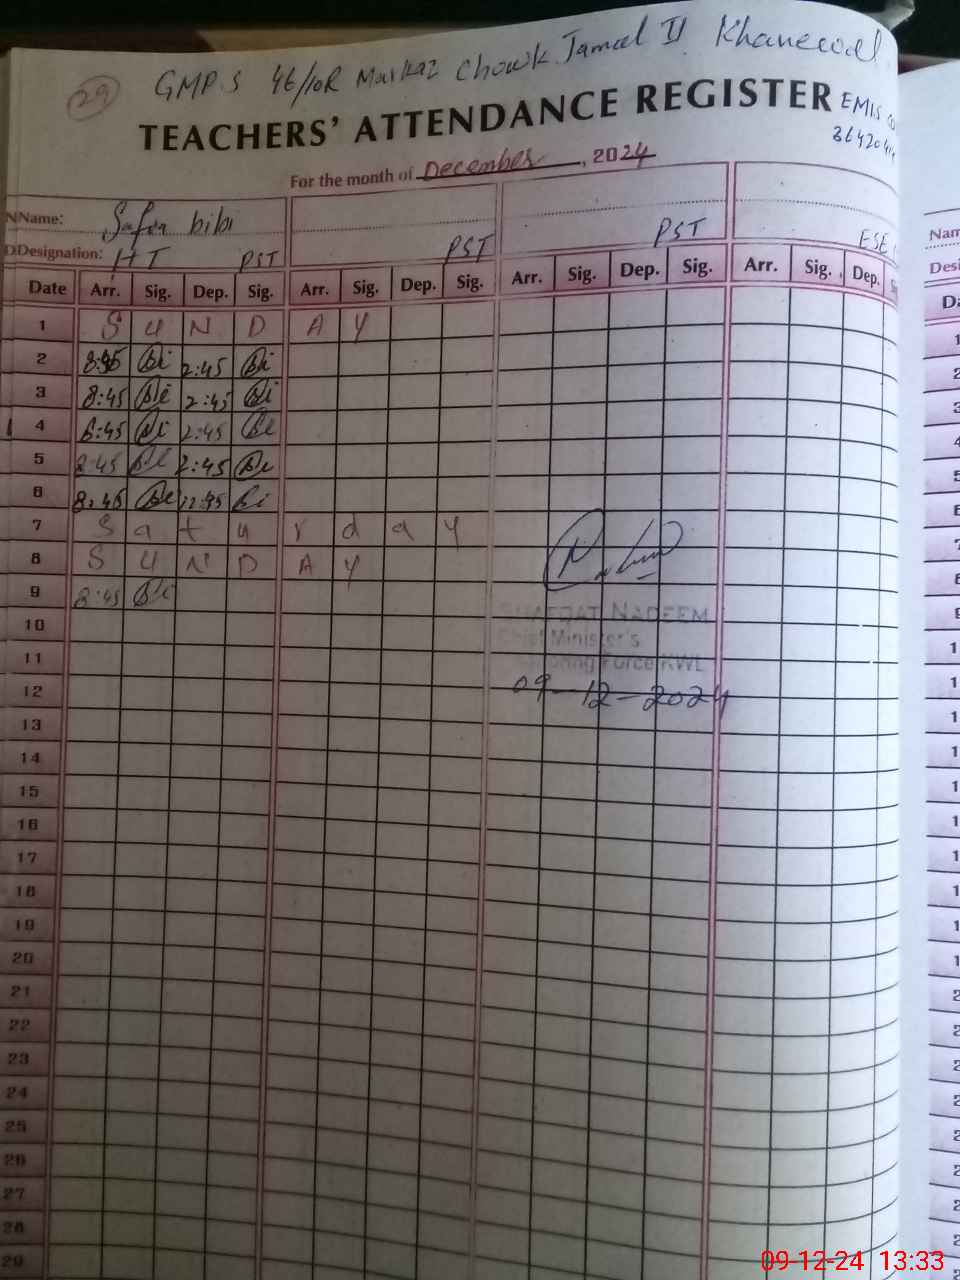 29
GMPS 46/10R Markaz Chowk Jamal II Khanewal
TEACHERS' ATTENDANCE REGISTER
EMIS
For the month of December, 2024
NName: Safia bibi
DDesignation: HT PST PST PST ESE
Date Arr. Sig. Dep. Sig. Arr. Sig. Dep. Sig. Arr. Sig. Dep. Sig. Arr. Sig. Dep.
1 S U N D A Y
2 8:45 2:45
3 8:45 2:45
4 8:45 2:45
5 8:45 2:45
6 8:45 12:45
7 S a t u r d a y
8 S U N D A Y
9 8:45
10
11
12
13
14
15
16
17
18
19
20
21
22
23
24
25
26
27
28
29
SHAFQAT NADEEM
Chief Minister's
Monitoring Force KWL
09-12-2024
Nam
Desi
Da
09-12-24 13:33